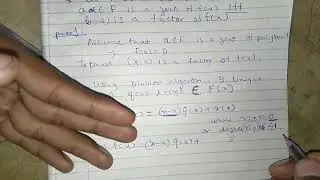 a ∈ F is a zero of f(x) iff
(x-a) is a factor of f(x)
proof
Assume that a ∈ F is a zero of polynomial
f(a) = 0
(x-a) is a factor of f(x).
Using Division algorithm, ∃ unique
q(x), r(x) ∈ F[x]
= (x-a) q(x) + r(x)
where r(x) = 0
or degree
(x-a) q(x) +